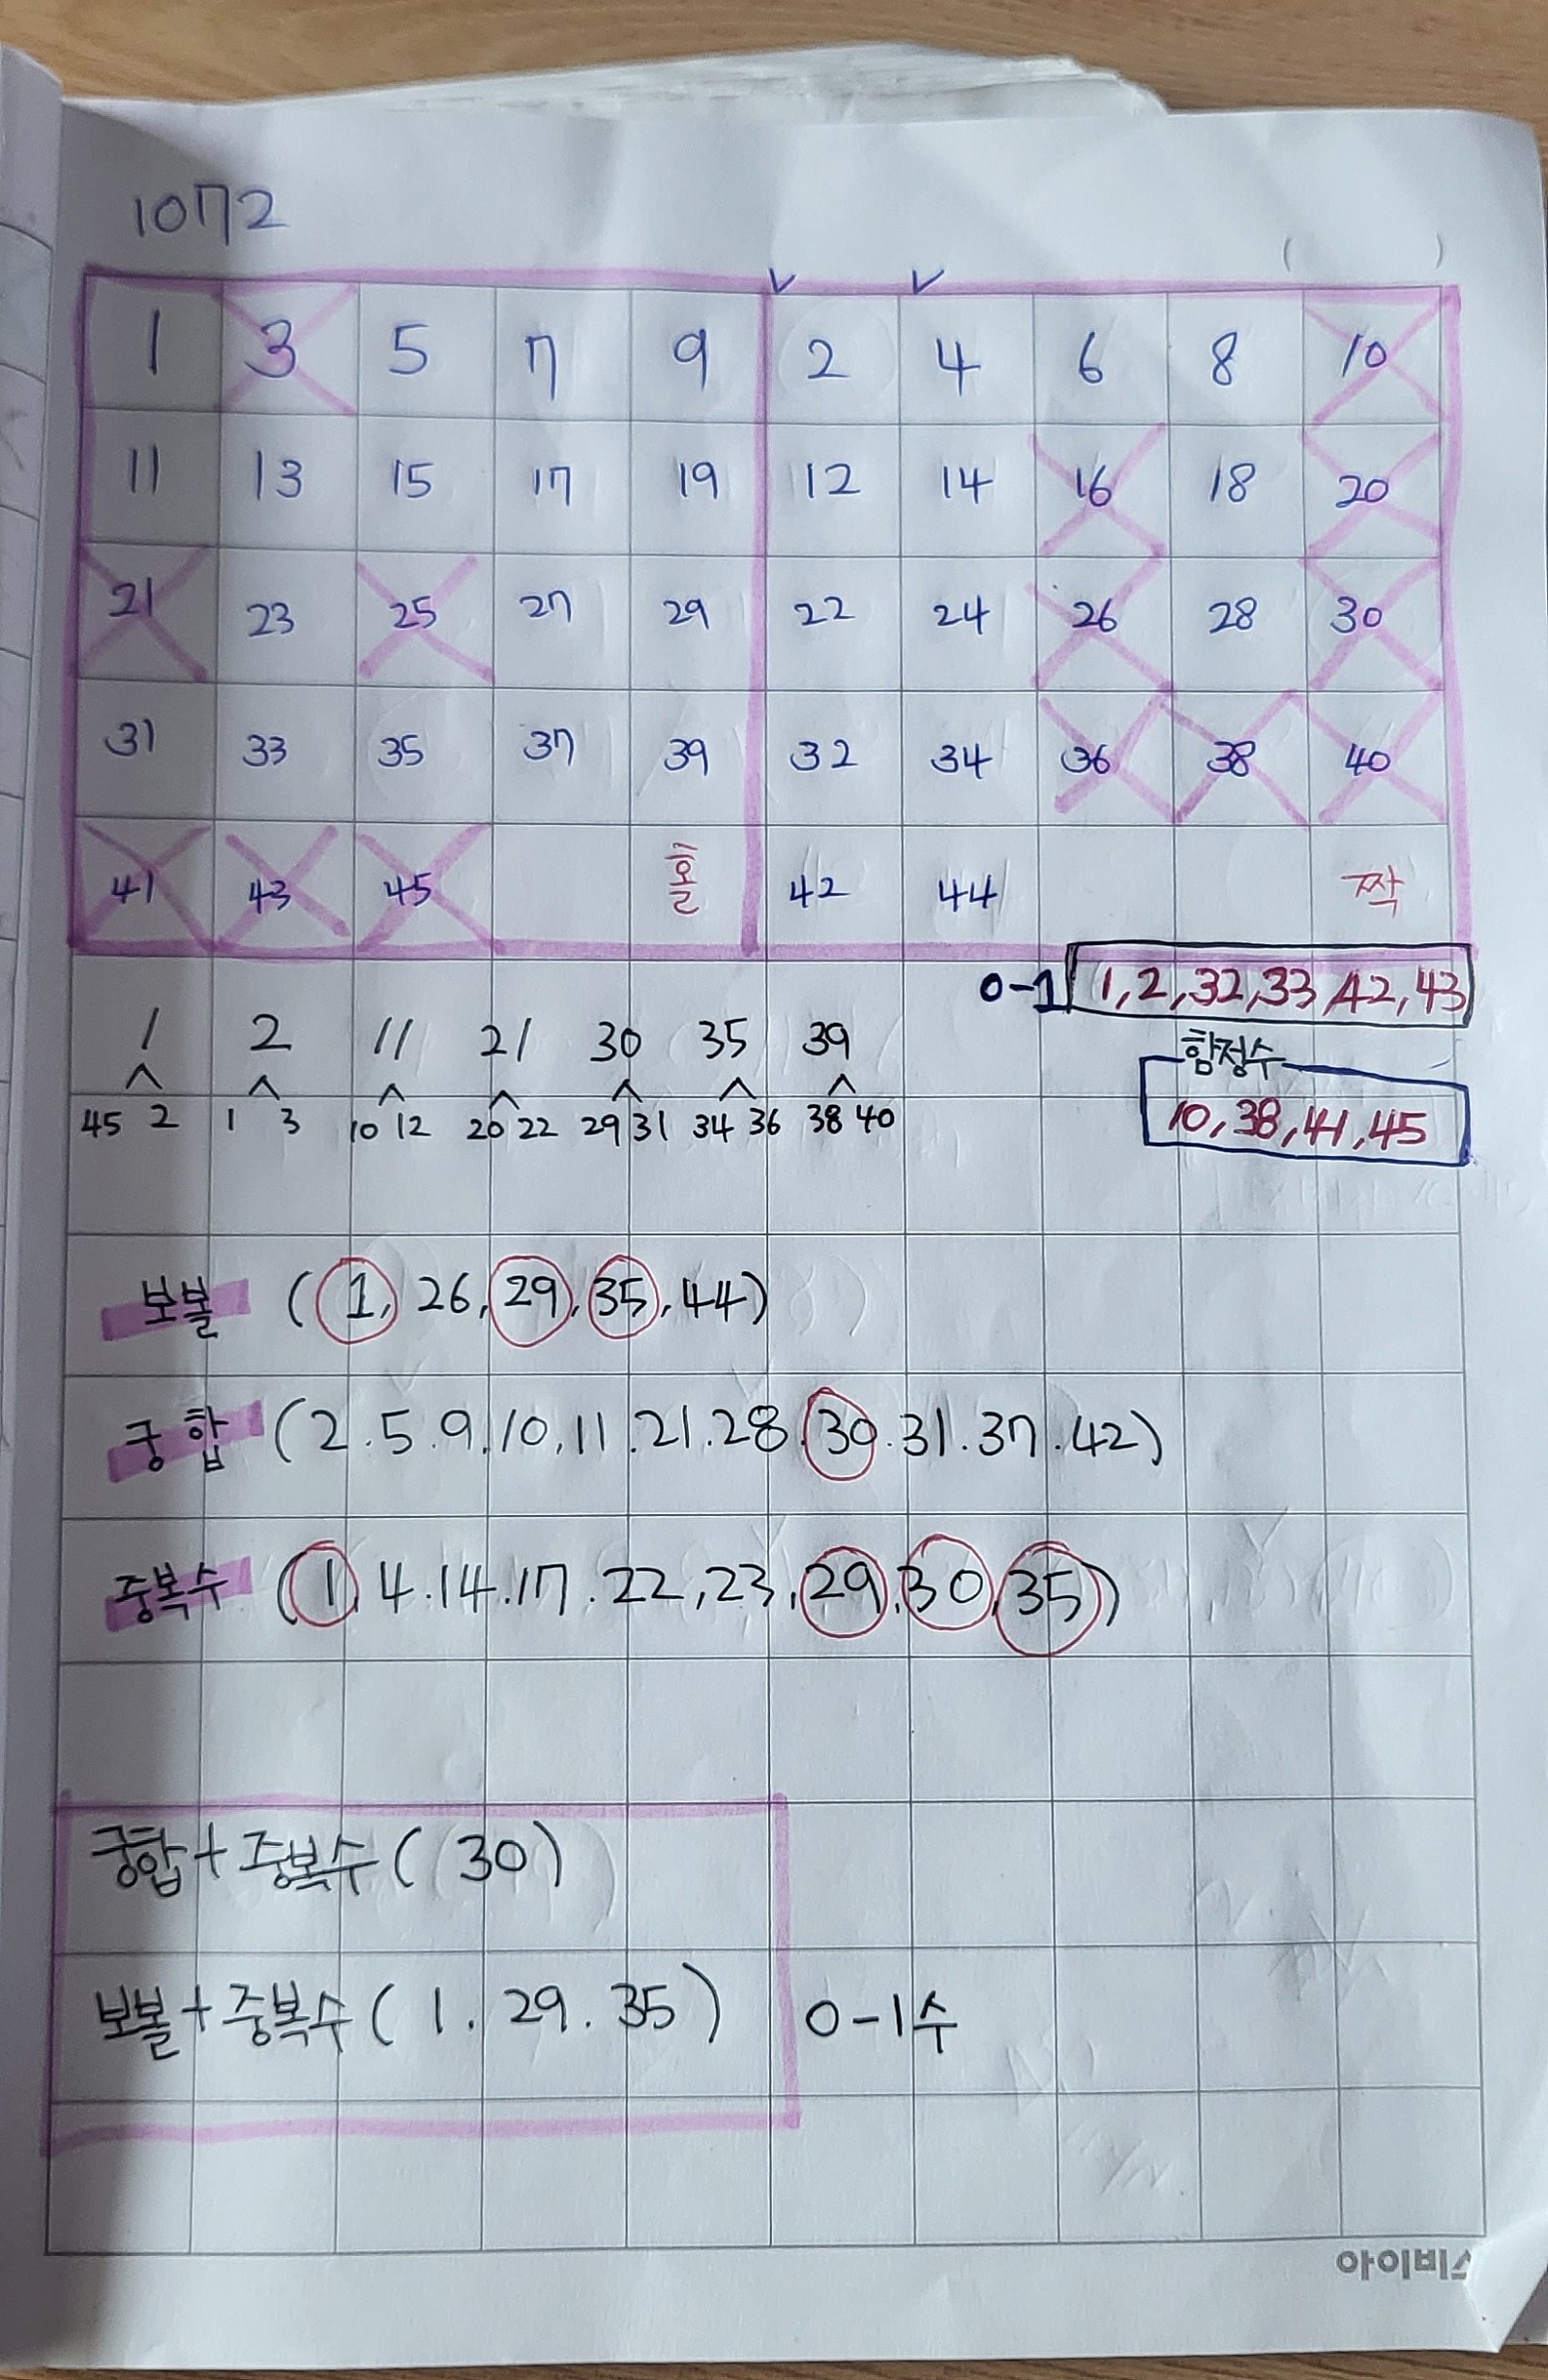 1072
( )
1 3 5 7 9 2 4 6 8 10
11 13 15 17 19 12 14 16 18 20
21 23 25 27 29 22 24 26 28 30
31 33 35 37 39 32 34 36 38 40
41 43 45 홀 42 44 짝
0-1 1,2,32,33,42,43
1 2 11 21 30 35 39
45 2 1 3 10 12 20 22 29 31 34 36 38 40
함정수
10,38,41,45
보볼 (1, 26, 29, 35, 44)
궁합 (2.5.9.10,11.21.28.30.31.37.42)
중복수 (1, 4.14.17.22,23,29.30,35)
궁합+중복수( 30)
보볼+중복수(1. 29. 35) 0-1수